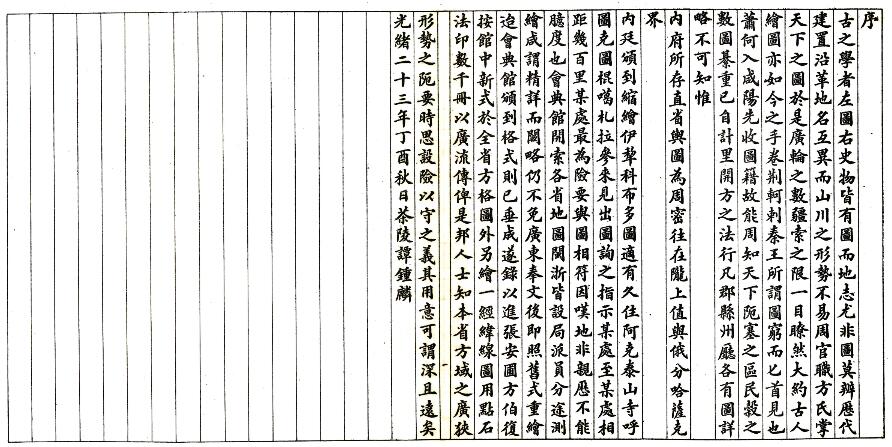 序
古之學者左圖右史物皆有圖而地志尤非圖莫辦歷代
建置沿革地名互異而山川之形勢不易周官職方氏掌
天下之圖於是廣輪之數疆索之限一目瞭然大約古人
繪圖亦如今之手卷荆軻刺秦王所謂圖窮而匕首見也
蕭何入咸陽先收圖籍故能周知天下阨塞之區民穀之
數圖綦重已自計里開方之法行凡郡縣州廳各有圖詳
略不可知惟
內府所存直省輿圖為周密往在隴上值與俄分哈薩克
界
內廷頒到縮繪伊犂科布多圖適有久住阿克泰山寺呼
圖克圖棍噶札拉參來見出圖詢之指示某處至某處相
距幾百里某處最為險要與圖相符因嘆地非親歷不能
臆度也會典館開索各省地圖閩浙皆設局派員分途測
繪咸謂精詳而闊略仍不免廣東奉文後即照舊式重繪
迨會典館頒到格式則已垂成遂錄以進張安圃方伯復
按館中新式於全省方格圖外另繪一經緯線圖用點石
法印數千冊以廣流傳俾是邦人士知本省方域之廣狹
形勢之阨要時思設險以守之義其用意可謂深且遠矣
光緒二十三年丁酉秋日茶陵譚鍾麟